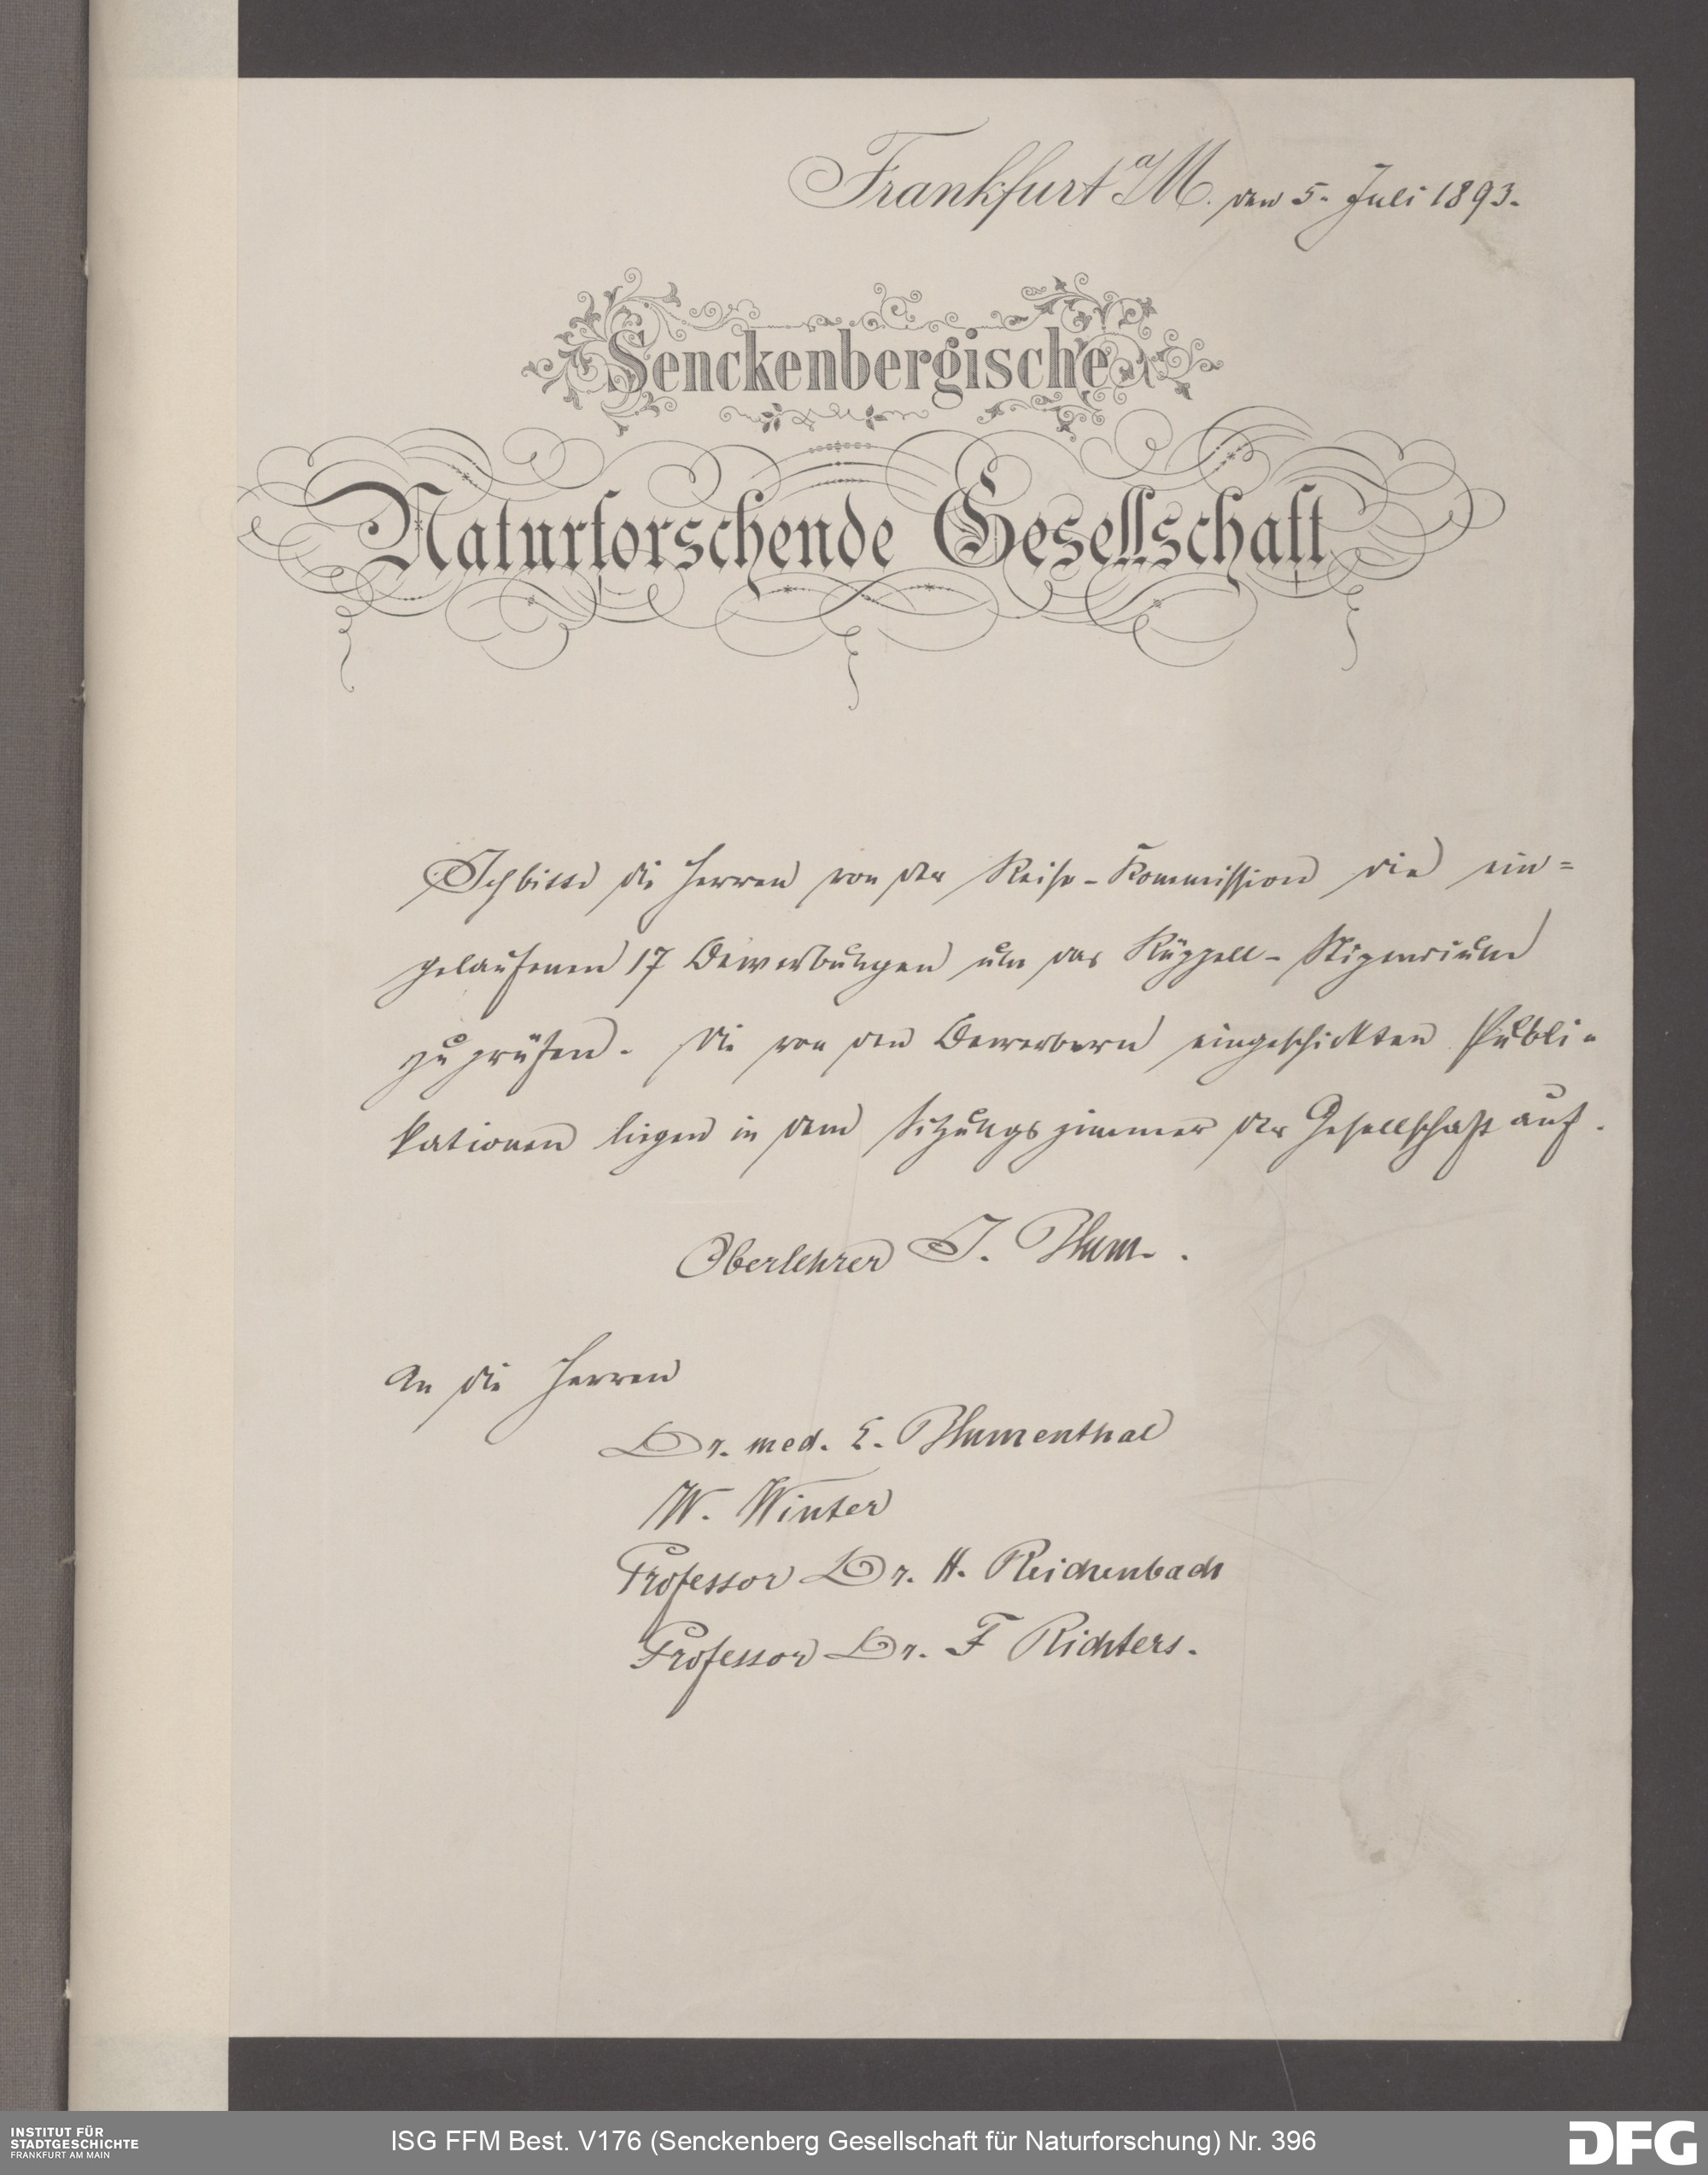 Frankfurt a/M. den 5. Juli 1893.
Senckenbergische
Naturforschende Gesellschaft
Ich bitte die Herren von der Reise-Kommission die ein=
gelaufenen 17 Bewerbungen um das Rüppell-Stipendium
zu prüfen. Die von den Bewerbern eingeschickten Publi-
kationen liegen in dem Sitzungszimmer der Gesellschaft auf.
Oberlehrer J. Blum.
An die Herren
Dr. med. E. Blumenthal
W. Winter
Professor Dr. H. Reichenbach
Professor Dr. F Richters.
INSTITUT FÜR
STADTGESCHICHTE
FRANKFURT AM MAIN
ISG FFM Best. V176 (Senckenberg Gesellschaft für Naturforschung) Nr. 396
DFG